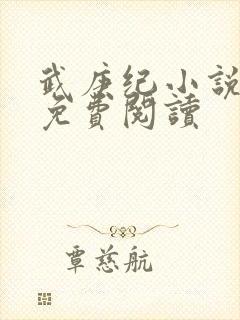 武庚纪小説
免費閱讀
覃慈航